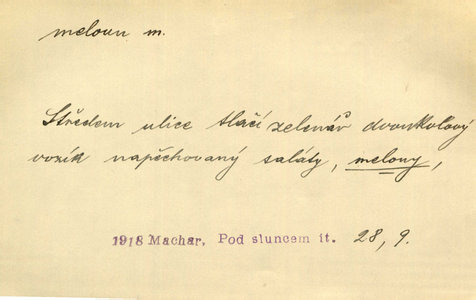 meloun m.
Středem ulice tlačí zelenář dvoukolový
vozík napěchovaný saláty, melony,
1918 Machar, Pod sluncem it. 28, 9.